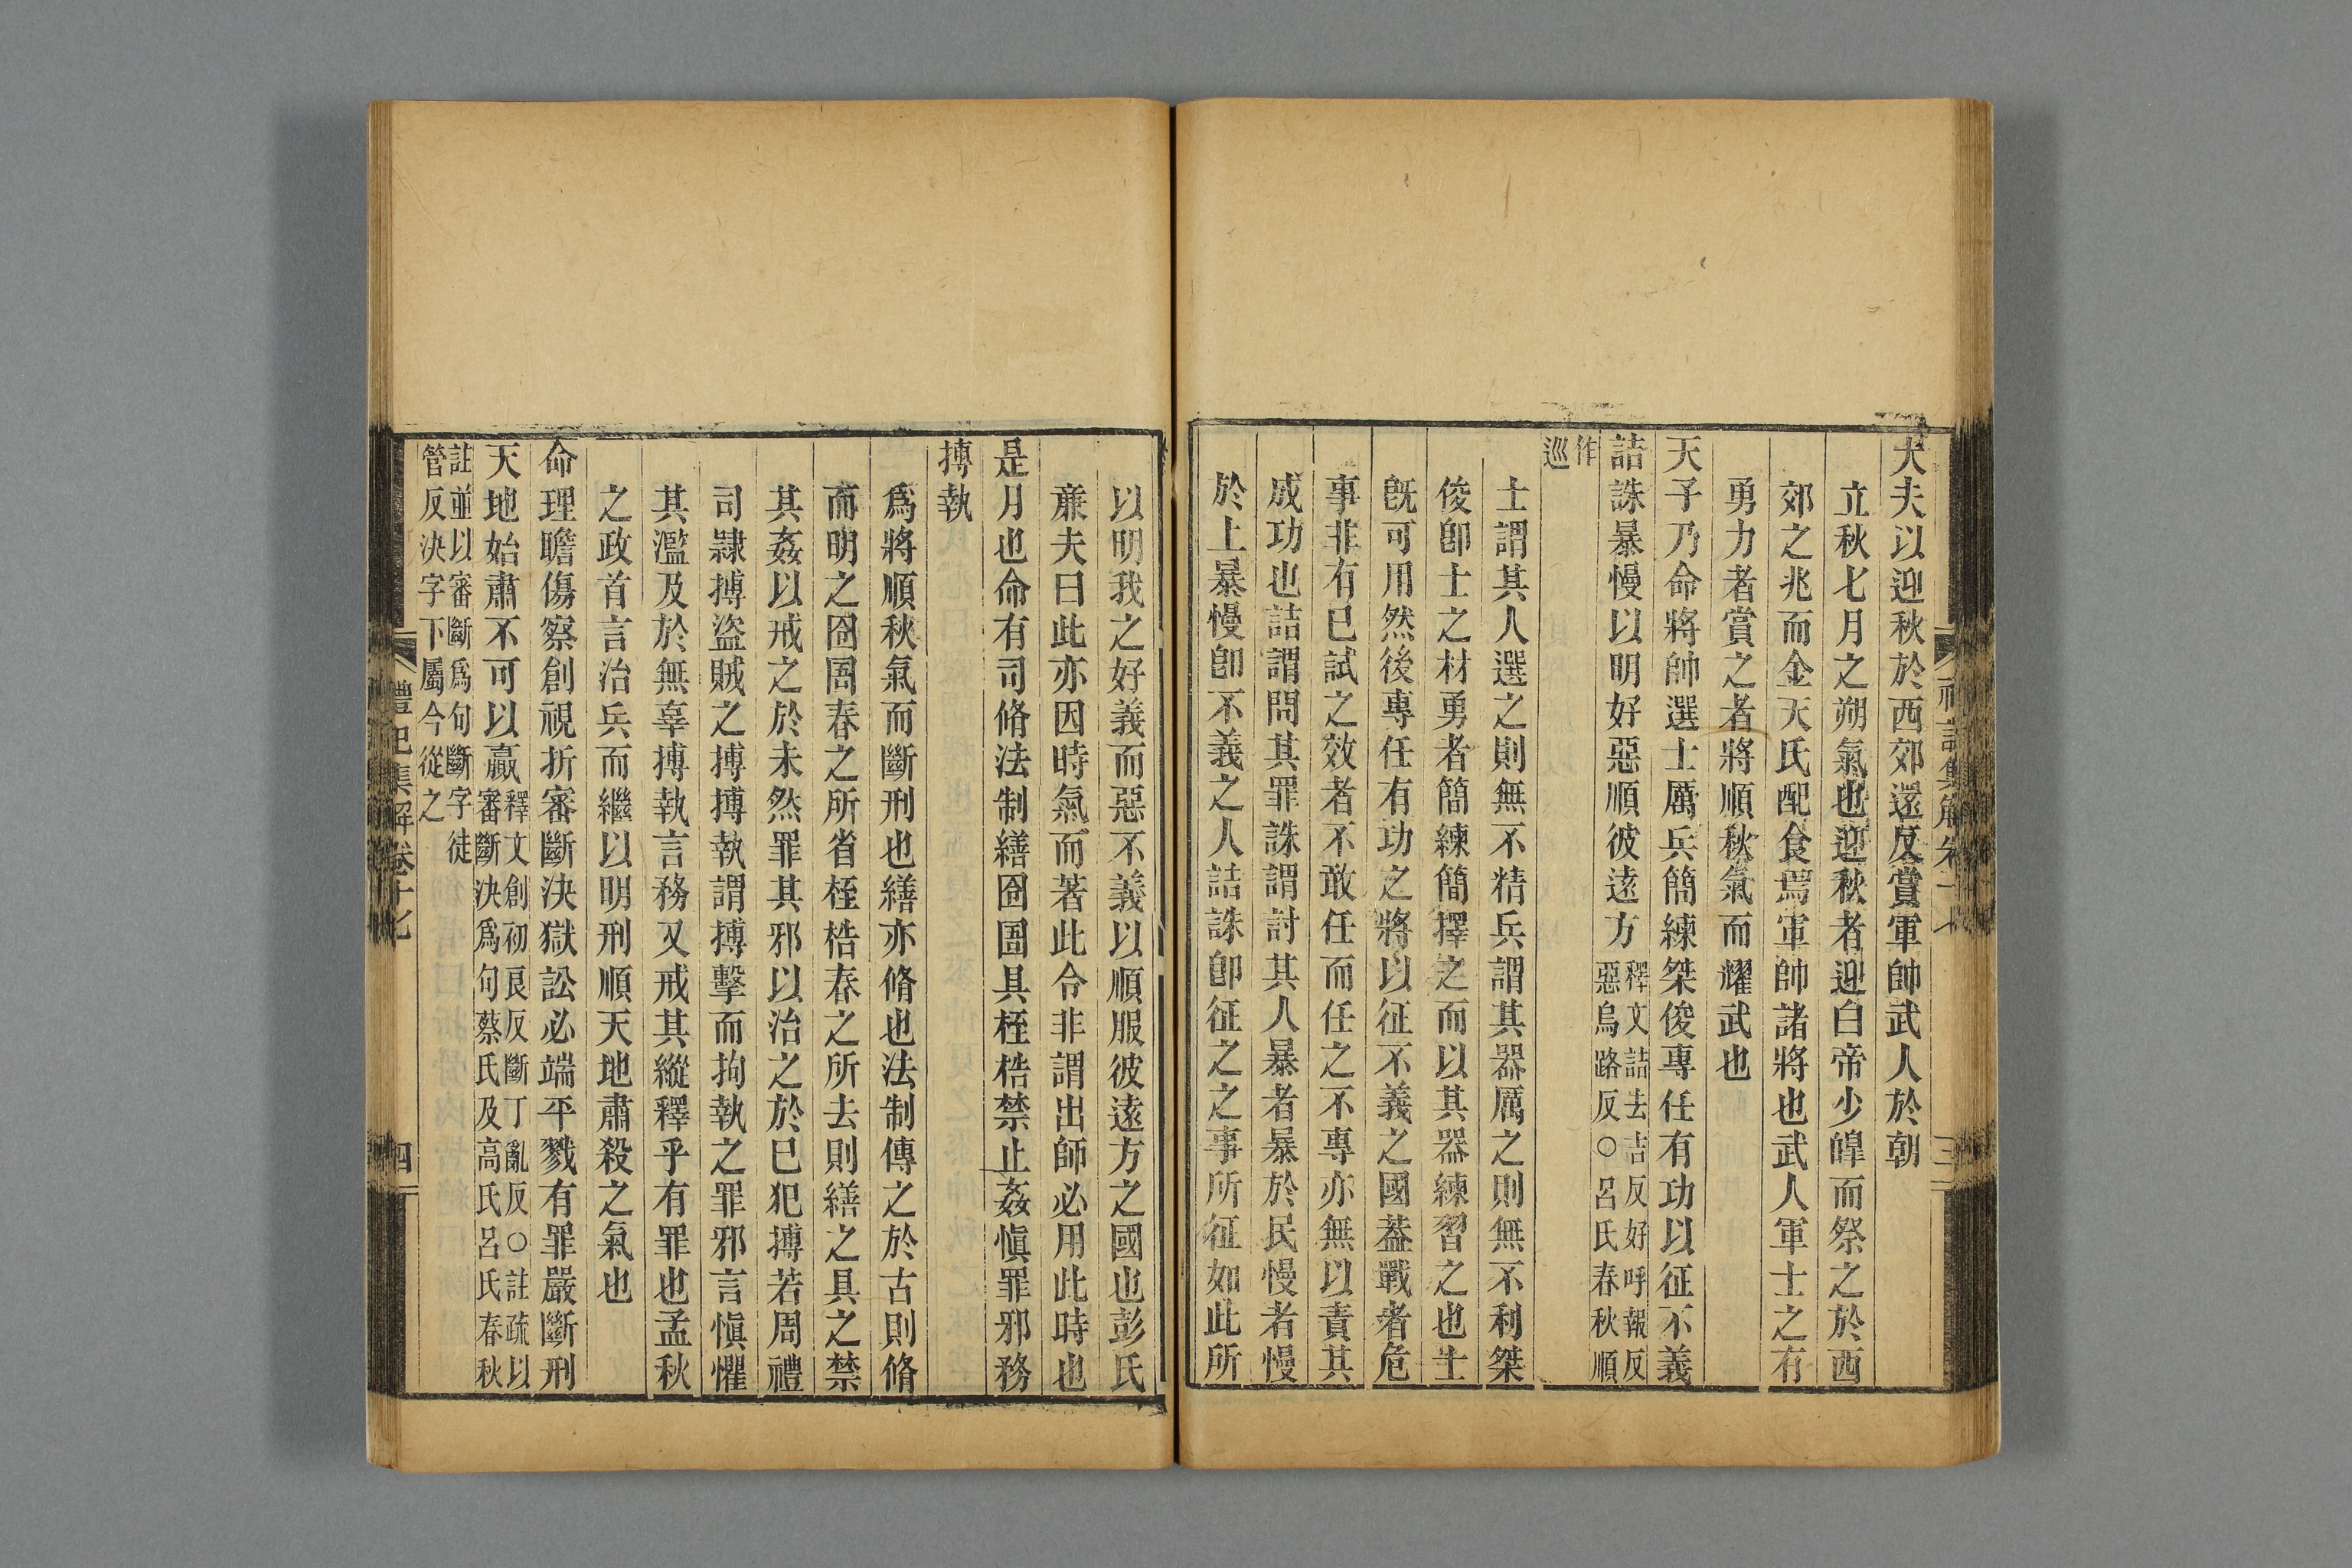 大夫以迎秋於西郊還反賞軍帥武人於朝
立秋七月之朔氣也迎秋者迎白帝少皥而祭之於西
郊之兆而金天氏配食焉軍帥諸將也武人軍士之有
勇力者賞之者將順秋氣而耀武也
天子乃命將帥選士厲兵簡練桀俊專任有功以征不義
詰誅暴慢以明好惡順彼遠方釋文詰去吉反好呼報反惡烏路反○呂氏春秋順
作巡
士謂其人選之則無不精兵謂其器厲之則無不利桀
俊卽士之材勇者簡練簡擇之而以其器練習之也士
旣可用然後專任有功之將以征不義之國蓋戰者危
事非有已試之效者不敢任而任之不專亦無以責其
成功也詰謂問其罪誅謂討其人暴者暴於民慢者慢
於上暴慢卽不義之人詰誅卽征之之事所征如此所
以明我之好義而惡不義以順服彼遠方之國也彭氏
亷夫曰此亦因時氣而著此令非謂出師必用此時也
是月也命有司脩法制繕囹圄具桎梏禁止姦愼罪邪務
搏執
爲將順秋氣而斷刑也繕亦脩也法制傳之於古則脩
而明之囹圄春之所省桎梏春之所去則繕之具之禁
其姦以戒之於未然罪其邪以治之於已犯搏若周禮
司隷搏盜賊之搏搏執謂搏擊而拘執之罪邪言愼懼
其濫及於無辜搏執言務又戒其縱釋乎有罪也孟秋
之政首言治兵而繼以明刑順天地肅殺之氣也
命理瞻傷察創視折審斷決獄訟必端平戮有罪嚴斷刑
天地始肅不可以贏釋文創初良反斷丁亂反○註疏以審斷決爲句蔡氏及高氏呂氏春秋
註並以審斷爲句斷字徒管反決字下屬今從之
禮記集解卷十七
四